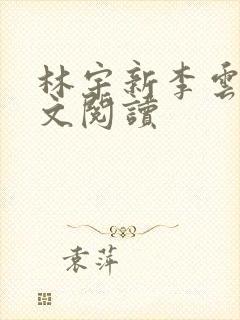 林宇新李雲
文閱讀
袁萍